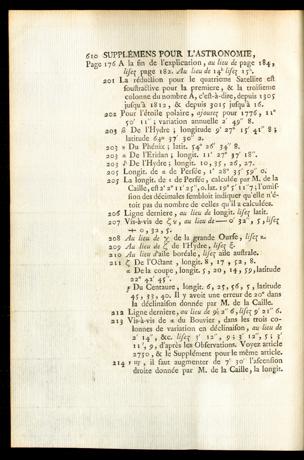 610 SUPPLÉMENS POUR L'ASTRONOMIE,
Page 176 A la fin de l'explication, au lieu de page 184,
lisez page 182. Au lieu de 14° lisez 15°.
201 La réduction pour le quatrieme Satellite est
soustractive pour la premiere, & la troisieme
colonne du nombre A, c'est-à-dire, depuis 1305
jusqu'à 1812, & depuis 3015 jusqu'à 16.
202 Pour l'étoile polaire, ajoutez pour 1776, 11°
50' 11"; variation annuelle 2' 49" 8.
203 De l'Hydre; longitude 9' 27° 15' 41" 8;
latitude 64° 37' 30" 2.
203 Du Phénix; latit. 54° 26' 34" 8.
203 De l'Eridan; longit. 11' 27° 37' 18".
203 De l'Hydre; longit. 10, 35, 26, 27.
205 Longit. de de Persée, 1' 28° 35' 59" 0.
205 La longit. de de Persée, calculée par M. de la
Caille, est 2' 11° 25", 0. lat. 19° 5' 11" 7; l'omis-
sion des décimales sembloit indiquer qu'elle n'é-
toit pas du nombre de celles qu'il a calculées.
206 Ligne derniere, au lieu de longit. lisez latit.
207 Vis-à-vis de ζ υ, au lieu de — 0' 32", 5, lisez
+ 0, 32, 5.
208 Au lieu de de la grande Ourse, lisez
209 Au lieu de de l'Hydre, lisez ξ.
210 Au lieu d'aile boréale, lisez aile australe.
211 ζ De l'Octant, longit. 8, 17, 52, 8.
De la coupe, longit. 5, 20, 14, 59, latitude
22° 42' 45".
De Centaure, longit. 6, 25, 56, 5, latitude
45, 33, 40. Il y avoit une erreur de 20" dans
la déclinaison donnée par M. de la Caille.
212 Ligne derniere, au lieu de 9' 2° 6, lisez 9' 21° 6.
213 Vis-à-vis de α du Bouvier, dans les trois co-
lonnes de variation en déclinaison, au lieu de
2' 14", &c. lisez 3' 12", 9; 3' 12", 5; 3'
11", 9, d'après les Observations. Voyez article
2750, & le Supplément pour le même article.
214 il faut augmenter de 7' 30" l'ascension
droite donnée par M. de la Caille, la longit.